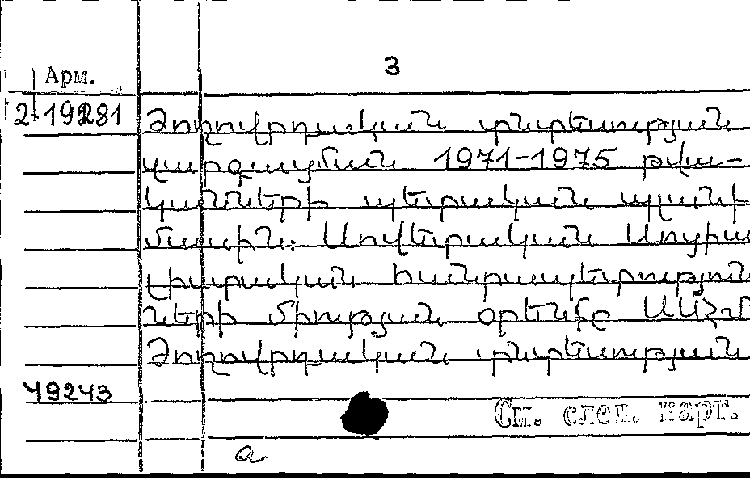 3
Арм.
2-19281
Ժողովրդական տնտեսության
զարգացման 1971-1975 թվա-
կանների պետական պլանի
մասին: Սովետական Սոցիա
լիստական Հանրապետություն
ների միության օրենքը ՍՍՀՄ
Ժողովրդական տնտեսության
49243
См. след. карт.
а